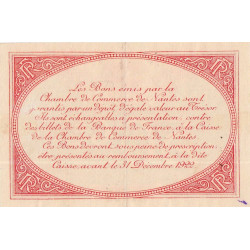 Les Bons émis par la
Chambre de Commerce de Nantes sont
garantis par un dépôt d'égale valeur au Trésor.
Ils sont échangeables à présentation, contre
des billets de la Banque de France, à la Caisse
de la Chambre de Commerce de Nantes.
Ces Bons devront, sous peine de prescription
être présentés au remboursement, à la dite
Caisse, avant le 31 Décembre 1922.